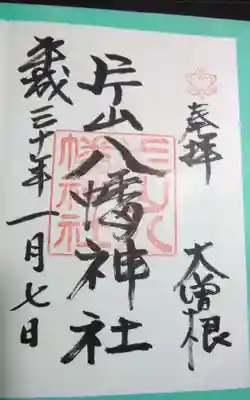 奉拝
大曽根
片山八幡神社
平成三十年一月七日
片山八
幡神社